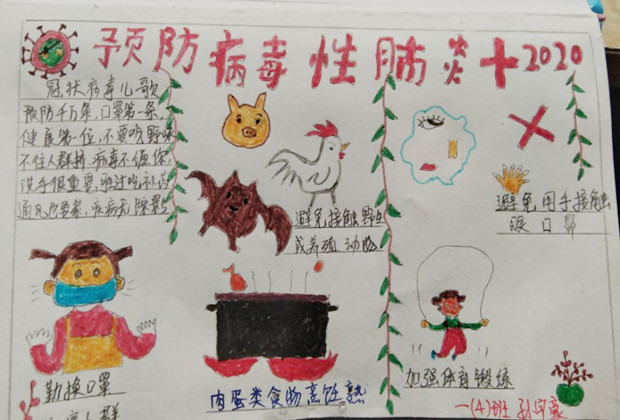 预防病毒性肺炎 2020
冠状病毒儿歌
预防千万条,口罩第一条,
健康第一位,不要吃野味
不往人群挤,病毒不值你,
洗手很重要,
通风也要紧,
避免接触野生
或养殖动物
避免用手接触
眼口鼻
勤换口罩
肉蛋类食物烹饪熟
加强体育锻练
一(4)班